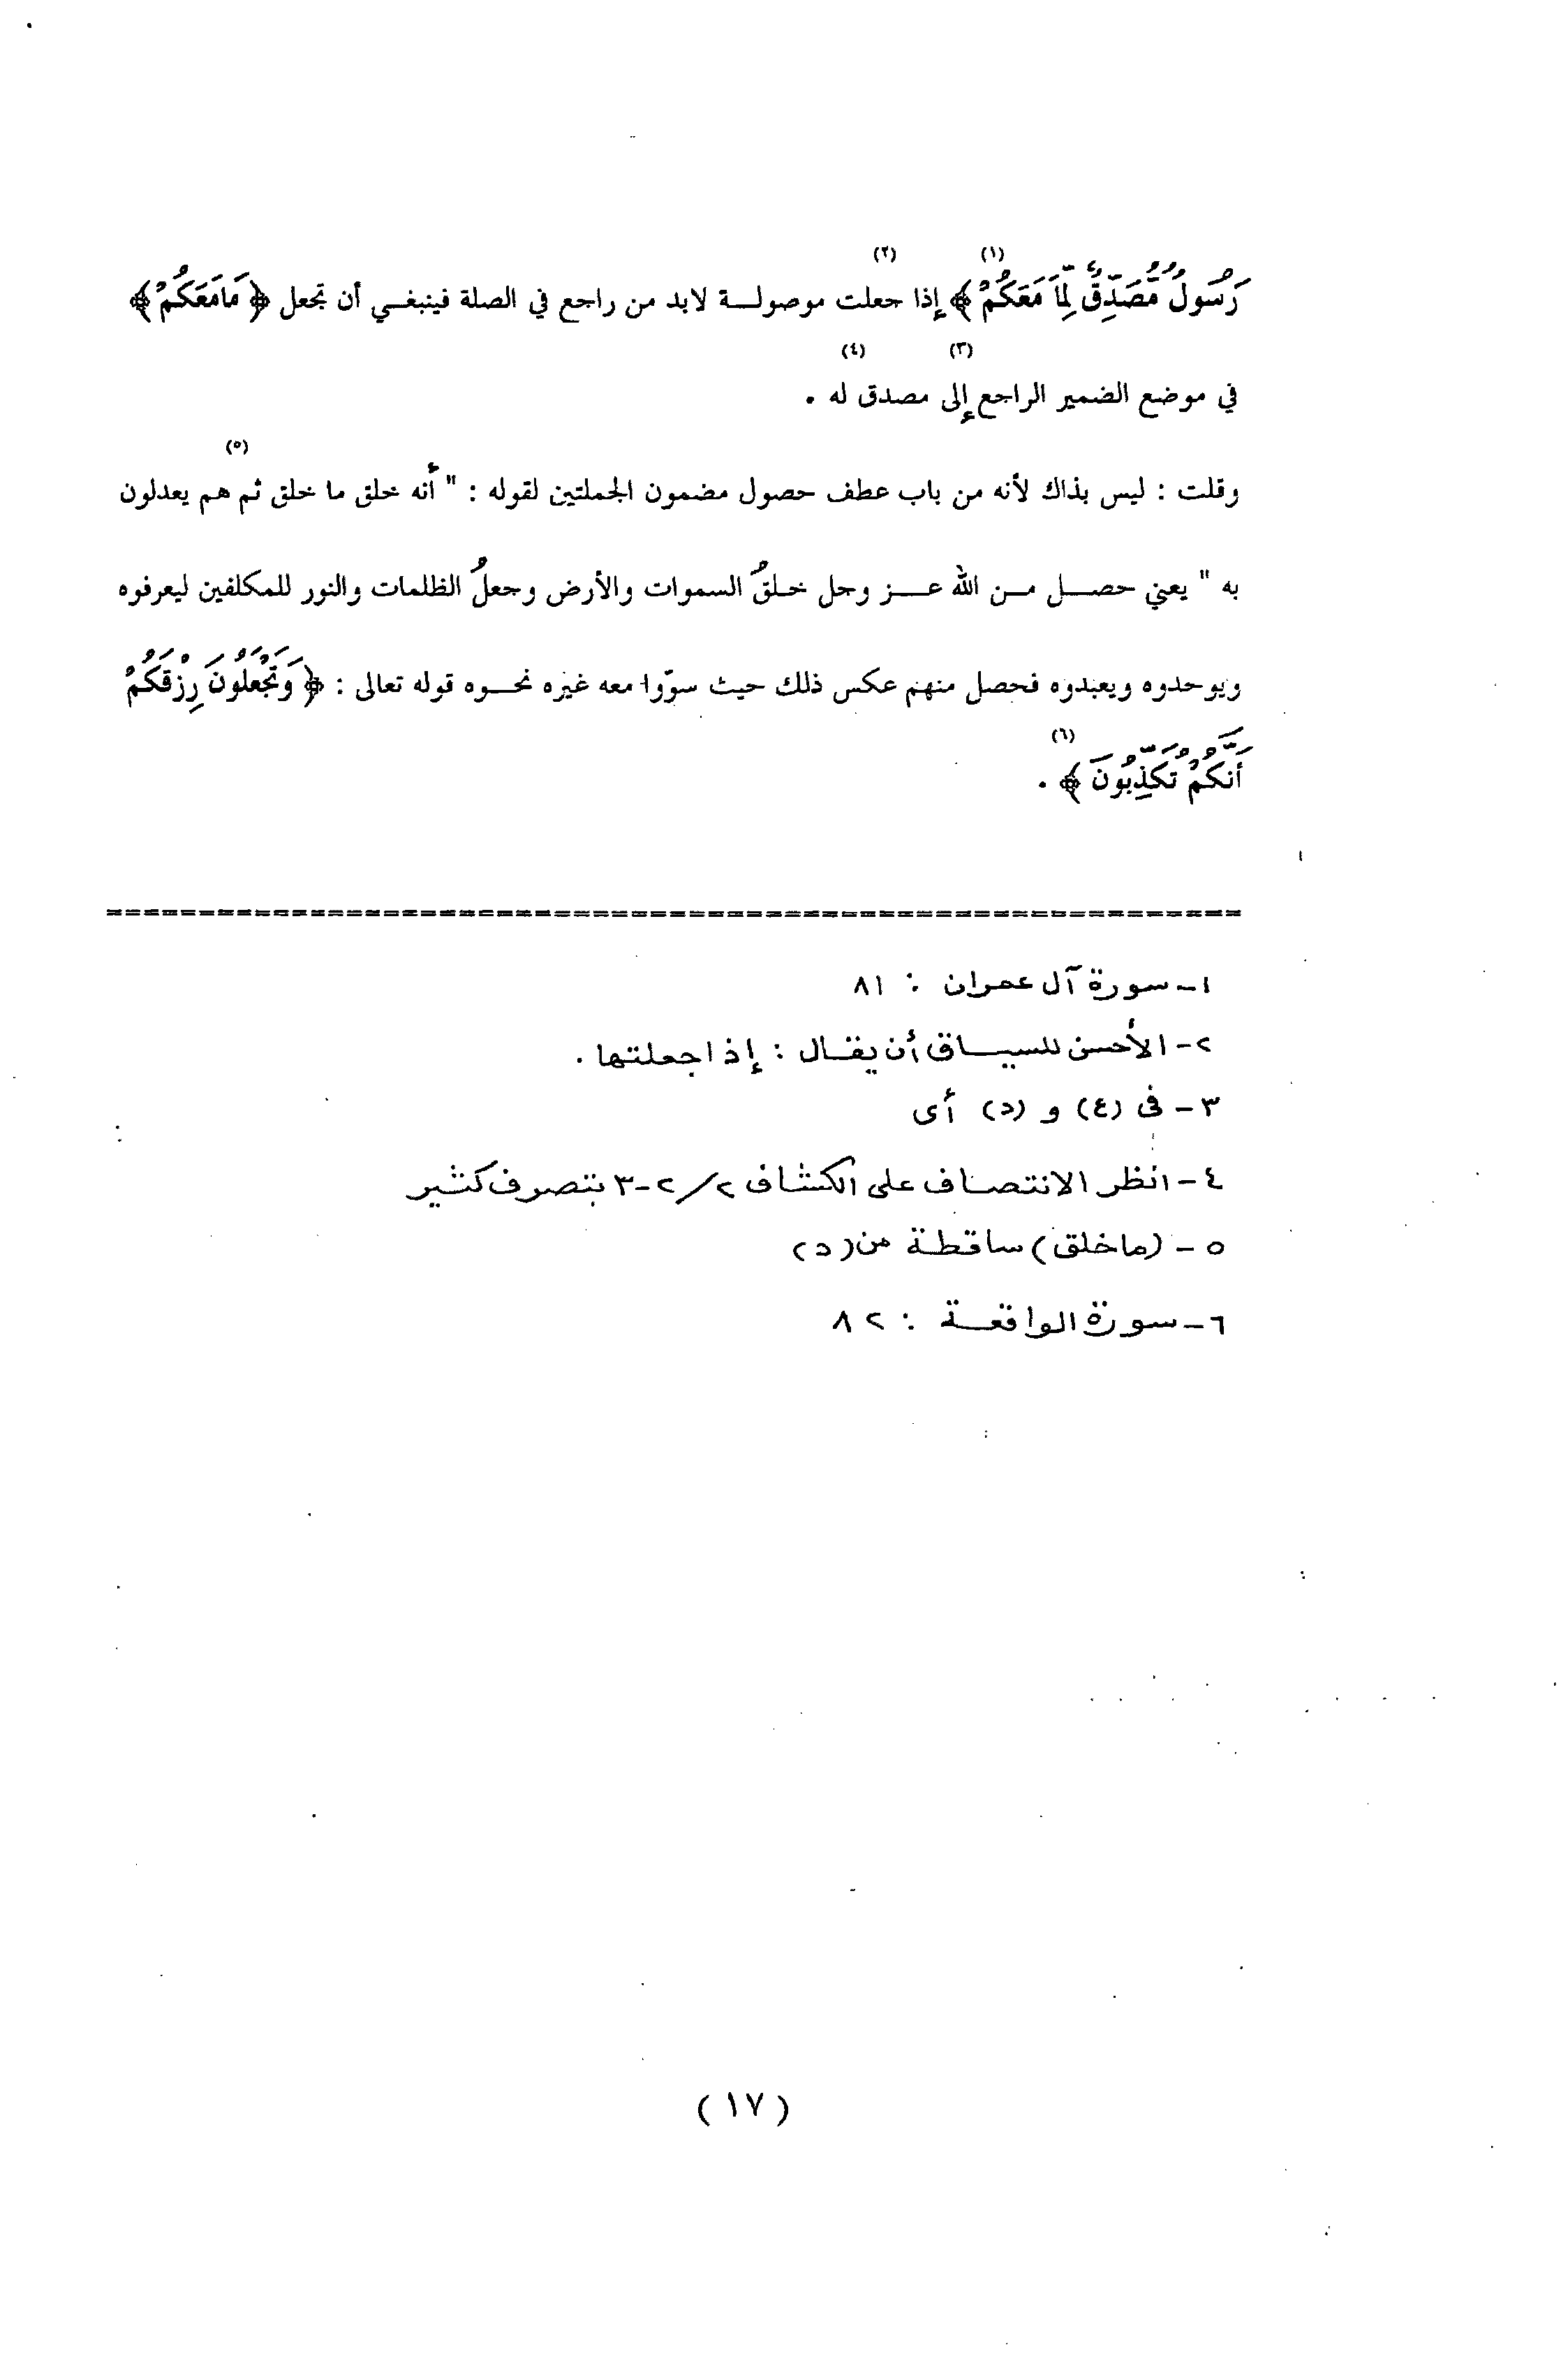 رَسُولٌ مُّصَدِّقٌ لِّمَا مَعَكُمْ ﴾ (١) إذا جعلت (٢) موصولة لابد من راجع في الصلة فينبغي أن تجعل ﴿ مَا مَعَكُمْ ﴾
في موضع الضمير الراجع إلى (٣) مصدق له (٤) .
وقلت : ليس بذاك لأنه من باب عطف حصول مضمون الجملتين لقوله : " أنه خلق ما خلق (٥) ثم هم يعدلون
به " يعني حصل من الله عز وجل خلقُ السموات والأرض وجعلُ الظلمات والنور للمكلفين ليعرفوه
ويوحدوه ويعبدوه فحصل منهم عكس ذلك حيث سوّوا معه غيره نحوه قوله تعالى : ﴿ وَتَجْعَلُونَ رِزْقَكُمْ
أَنَّكُمْ تُكَذِّبُونَ ﴾ (٦) .
١- سورة آل عمران : ٨١
٢- الأحسن للسياق أن يقال : إذا جعلتها .
٣- فى (ع) و (د) أى
٤- انظر الانتصاف على الكشاف ٢/٢-٣ بتصرف كثير
٥- (ما خلق) ساقطة من (د)
٦- سورة الواقعة : ٨٢
( ١٧ )